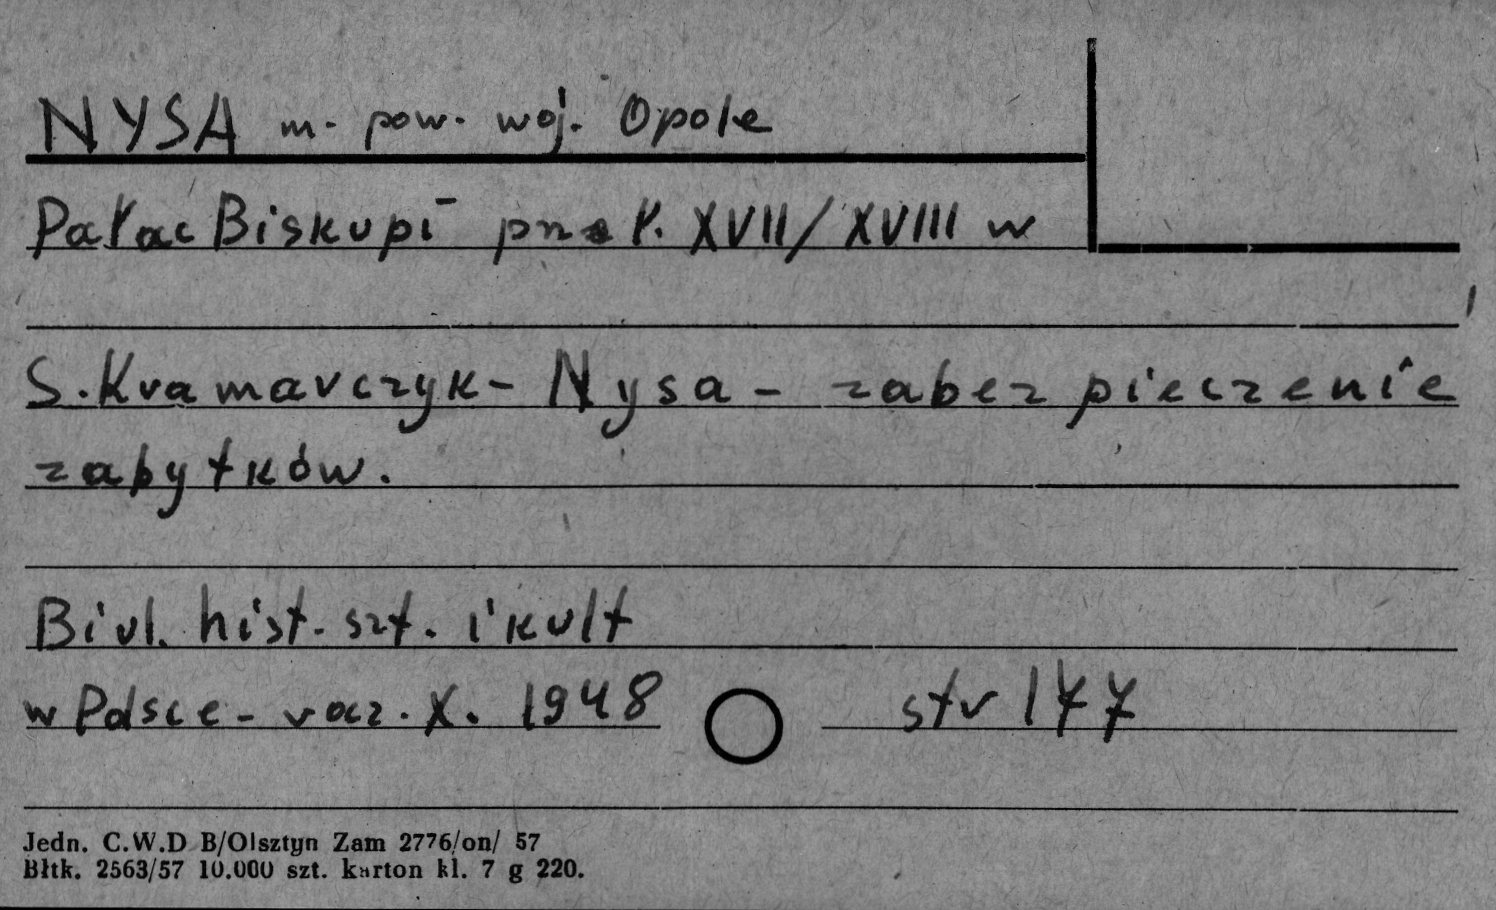 NYSA m. pow. woj. Opole
Pałac Biskupi przeł. XVII/XVIII w
S. Kramarczyk - Nysa - zabezpieczenie
zabytków.
Biul. hist. szt. i kult
w Polsce - rocz. X. 1948 str 177
Jedn. C.W.D B/Olsztyn Zam 2776/on/ 57
Błtk. 2563/57 10.000 szt. karton kl. 7 g 220.